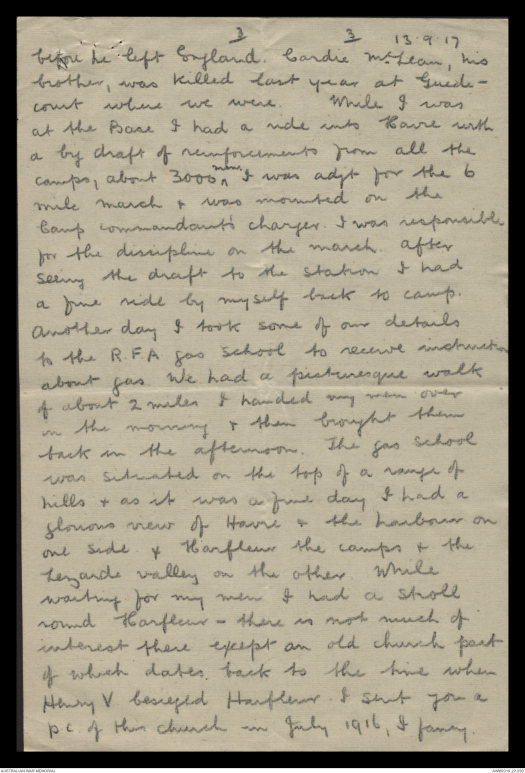 3 3 13.9.17
before he left England. Cardie McLean, his
brother, was killed last year at Guede-
court where we were. While I was
at the Base I had a ride into Havre with
a big draft of reinforcements from all the
camps, about 3000 men. I was adjt for the 6
mile march & was mounted on the
Camp commandant's charger. I was responsible
for the discipline on the march. After
seeing the draft to the station I had
a fine ride by myself back to camp.
Another day I took some of our details
to the R.F.A gas school to receive instruction
about gas. We had a picturesque walk
of about 2 miles. I handed my men over
in the morning & then brought them
back in the afternoon. The gas school
was situated on the top of a range of
hills & as it was a fine day I had a
glorious view of Havre & the harbour on
one side & Harfleur the camps & the
Lezarde valley on the other. While
waiting for my men I had a stroll
round Harfleur - there is not much of
interest there except an old church part
of which dates back to the time when
Henry V besieged Harfleur. I sent you a
p.c. of this church in July 1916, I fancy.
AUSTRALIAN WAR MEMORIAL